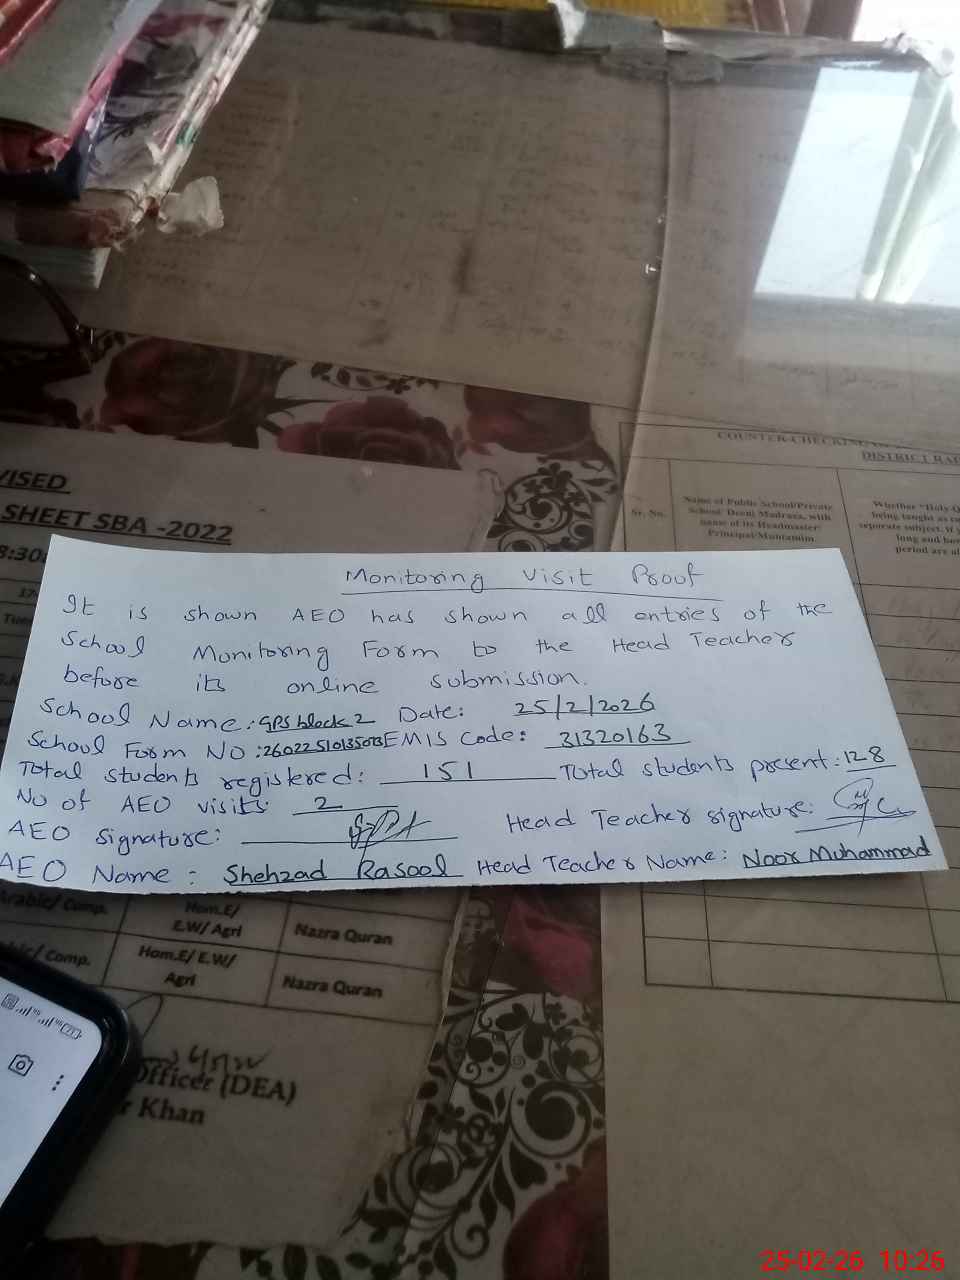 VISED
SHEET SBA -2022
COUNTER-CHECKING
DISTRICT
Sr. No.
Name of Public School/Private
School/ Deeni Madrasa, with
name of its Headmaster/
Principal/Muhtamim
Whether "Holy
being taught as
separate subject. If
long and
period are
Monitoring Visit Proof
It is shown AEO has shown all entries of the
School Monitoring Form to the Head Teacher
before its online submission.
School Name: GPS block 2 Date: 25/2/2026
School Form No: 2602251013503 EMIS Code: 31320163
Total students registered: 151 Total students present: 128
No of AEO visits: 2
AEO Signature: Head Teacher signature:
AEO Name: Shehzad Rasool Head Teacher Name: Noor Muhammad
Arabic/ Comp. Hom.E/ E.W/ Agri Nazra Quran
Comp. Hom.E/ E.W/ Agri Nazra Quran
Officer (DEA)
Khan
25-02-26 10:26